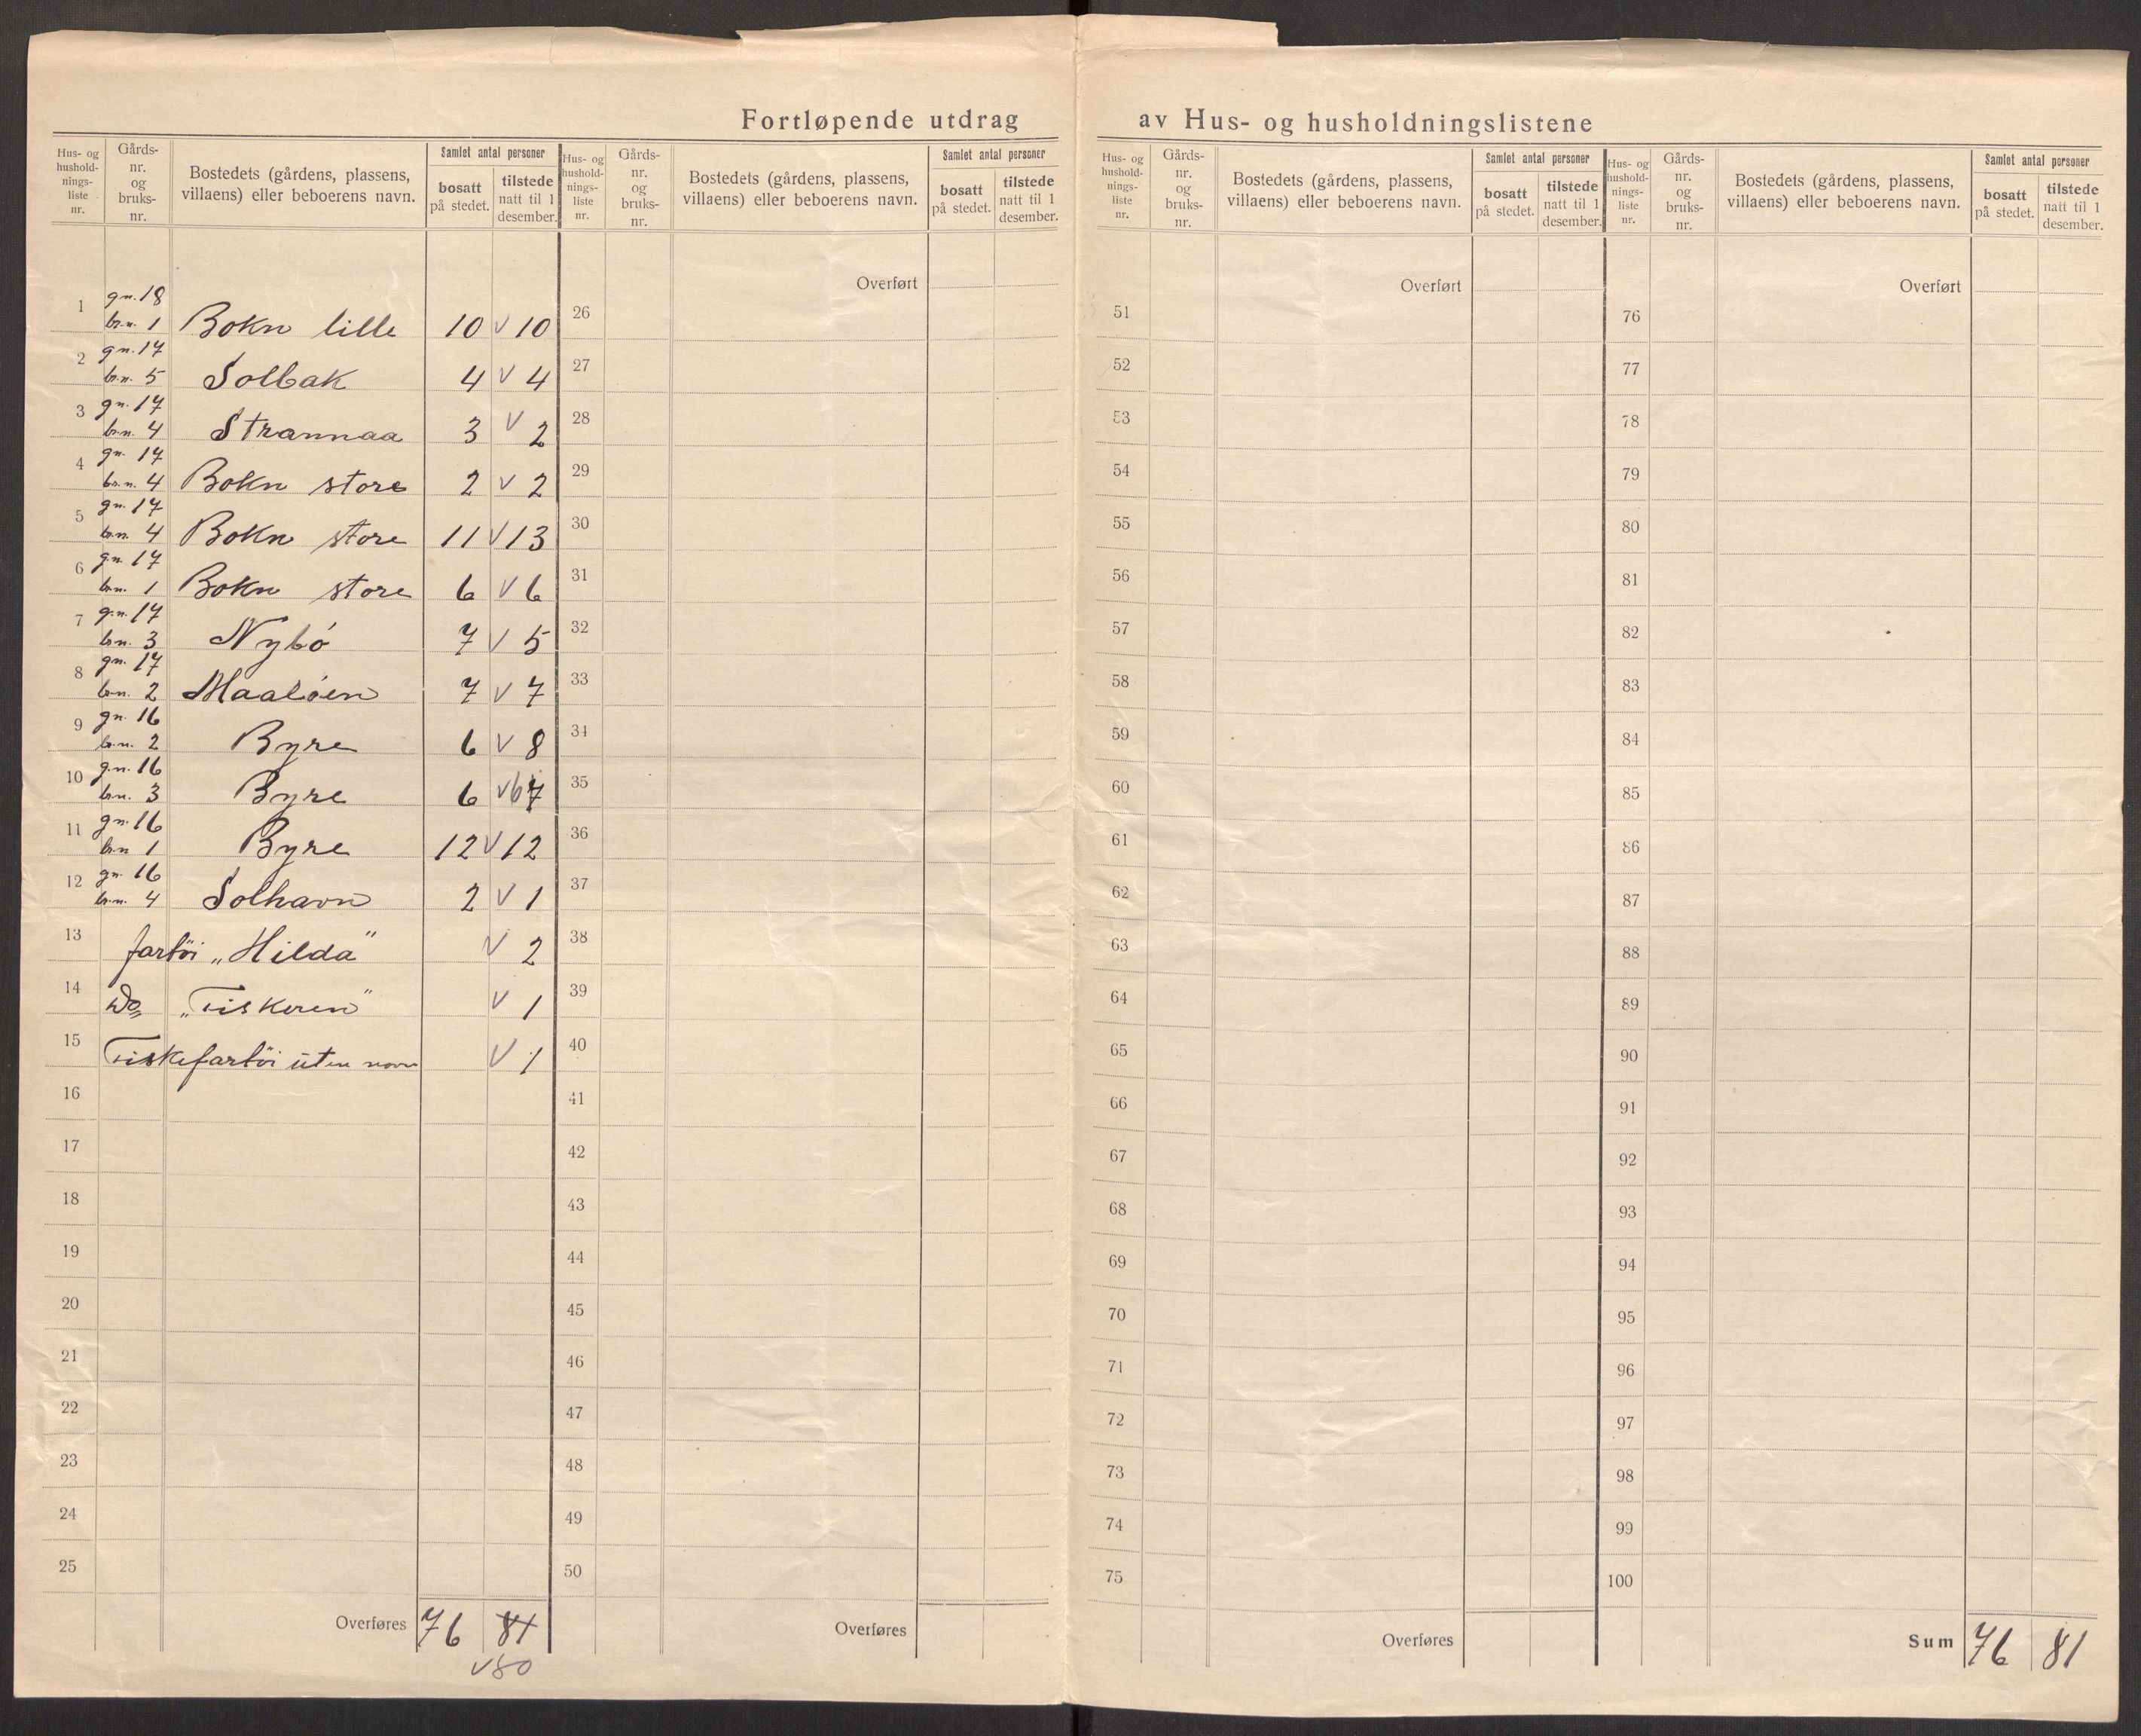 Fortløpende utdrag av Hus- og husholdningslistene
Hus- og hushold-nings-liste nr.
Gårds-nr. og bruks-nr.
Bostedets (gårdens, plassens, villaens) eller beboerens navn.
Samlet antal personer
bosatt på stedet.
tilstede natt til 1 desember.
Hus- og hushold-nings-liste nr.
Gårds-nr. og bruks-nr.
Bostedets (gårdens, plassens, villaens) eller beboerens navn.
Samlet antal personer
bosatt på stedet.
tilstede natt til 1 desember.
Hus- og hushold-nings-liste nr.
Gårds-nr. og bruks-nr.
Bostedets (gårdens, plassens, villaens) eller beboerens navn.
Samlet antal personer
bosatt på stedet.
tilstede natt til 1 desember.
Hus- og hushold-nings-liste nr.
Gårds-nr. og bruks-nr.
Bostedets (gårdens, plassens, villaens) eller beboerens navn.
Samlet antal personer
bosatt på stedet.
tilstede natt til 1 desember.
1 gn. 18 br.n. 1 Bokn lille 10 v 10
2 gn. 17 br.n. 5 Solbak 4 v 4
3 gn. 17 br.n. 4 Strannaa 3 v 2
4 gn. 17 br.n. 4 Bokn store 2 v 2
5 gn. 17 br.n. 4 Bokn store 11 v 13
6 gn. 17 br.n. 1 Bokn store 6 v 6
7 g.n. 17 br.n. 3 Nybö 7 v 5
8 gn. 17 br.n. 2 Maalöen 7 v 7
9 gn. 16 br.n. 2 Byre 6 v 8
10 g.n. 16 br.n. 3 Byre 6 v 6 7
11 gn. 16 br.n 1 Byre 12 v 12
12 gn. 16 br.n. 4 Solhavn 2 v 1
13 fartöi „Hilda" v 2
14 Do „Fiskeren" v 1
15 Fiskefartöi uten navn v 1
16
17
18
19
20
21
22
23
24
25
Overføres 76 81
v 80
Overført
26
27
28
29
30
31
32
33
34
35
36
37
38
39
40
41
42
43
44
45
46
47
48
49
50
Overføres
Overført
51
52
53
54
55
56
57
58
59
60
61
62
63
64
65
66
67
68
69
70
71
72
73
74
75
Overføres
Overført
76
77
78
79
80
81
82
83
84
85
86
87
88
89
90
91
92
93
94
95
96
97
98
99
100
Sum 76 81